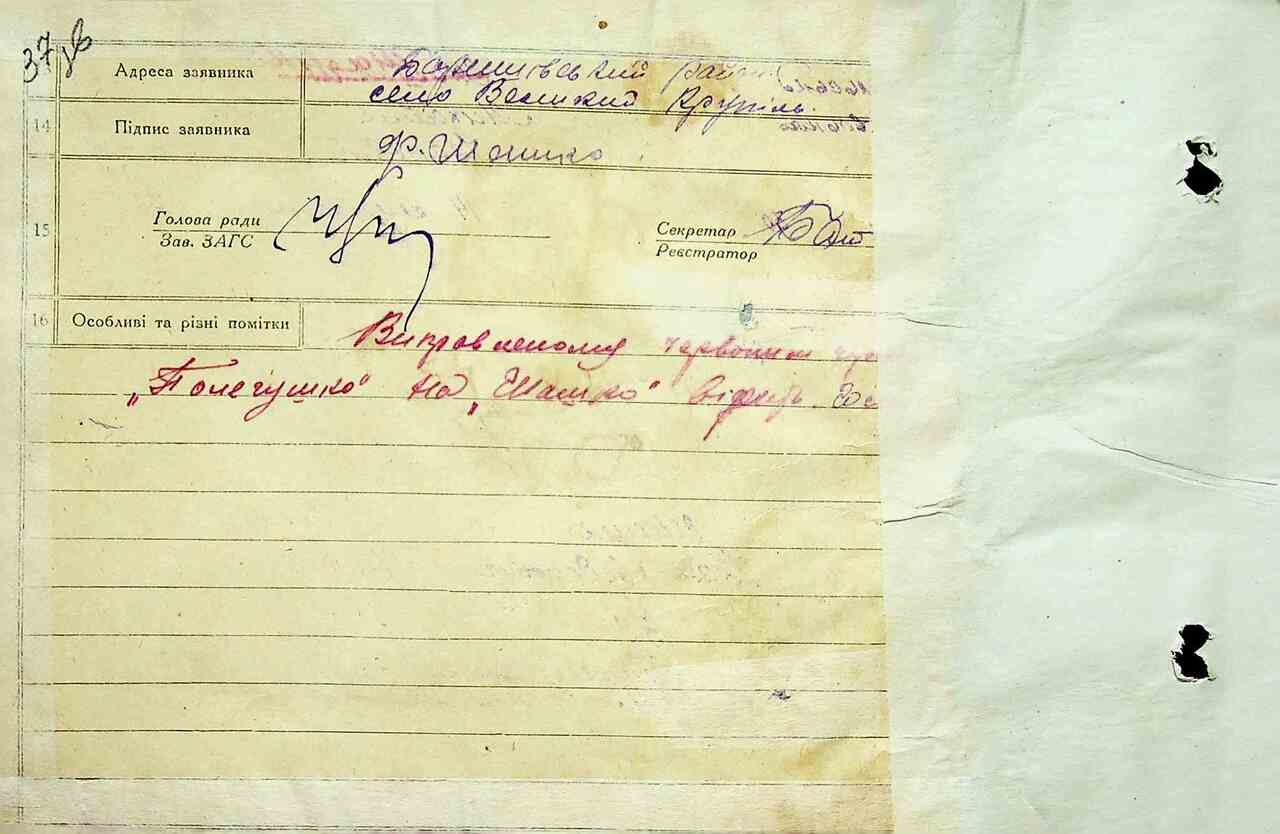 37 зв
Адреса заявника
Баришівський район
село Великий Крупіль.
14
Підпис заявника
Ф. Шашко
15
Голова ради
Зав. ЗАГС
Секретар
Реєстратор
16
Особливі та різні помітки
Виправленому червоним
„Полегушко" на „Шашко"